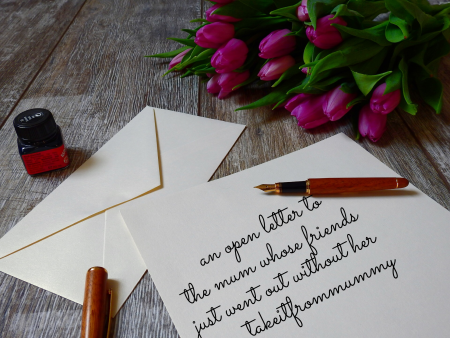 an open letter to
the mum whose friends
just went out without her
takeitfrommummy